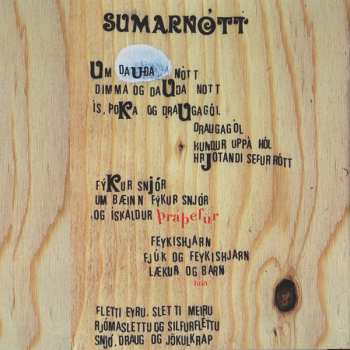 SUMARNÓTT
UM DAUÐA NÓTT
DIMMA OG DAUÐA NOTT
ÍS, ÞOKA OG DRAUGAGÓL
DRAUGAGÓL
HUNDUR UPPÁ HÓL
HRJÓTANDI SEFUR RÓTT
FÝKUR SNJÓR
UM BÆINN FÝKUR SNJÓR
OG ÍSKALDUR ÞRÁÞEFUR
FEYKISHJARN
FJÚK OG FEYKISHJARN
LÆKUR OG BARN
FLETTI EYRU, SLETTI MEIRU
RJÓMASLETTU OG SILFURFLÉTTU
SNJÓ, DRAUG OG JÖKULKRAP